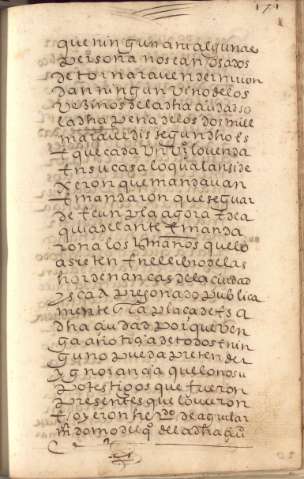 que ningun ani alguna
persona no sean osados
de tornar a vender ni ven
dan ningun vino de los
vezinos de la dha ciudad so
la dha pena de los dos mill
maravedis segun dho es
que cada un vzo lo venda
en su casa lo qual ansi de
xeron que mandavan
e mandaron que se guar
de e cunpla agora e de a
qui adelante e manda
ron a los que lo
asienten en el libro de las
hordenanças de la ciudad
y sea pregonado publica
mente en la plaça de esta
dha ciudad porque ven
ga a notiçia de todos e nin
guno pueda pretender
ygnorançia que lo no su
po testigos que fueron
presentes que lo vieron
e oyeron her.do de aguilar
m domo del de la dha